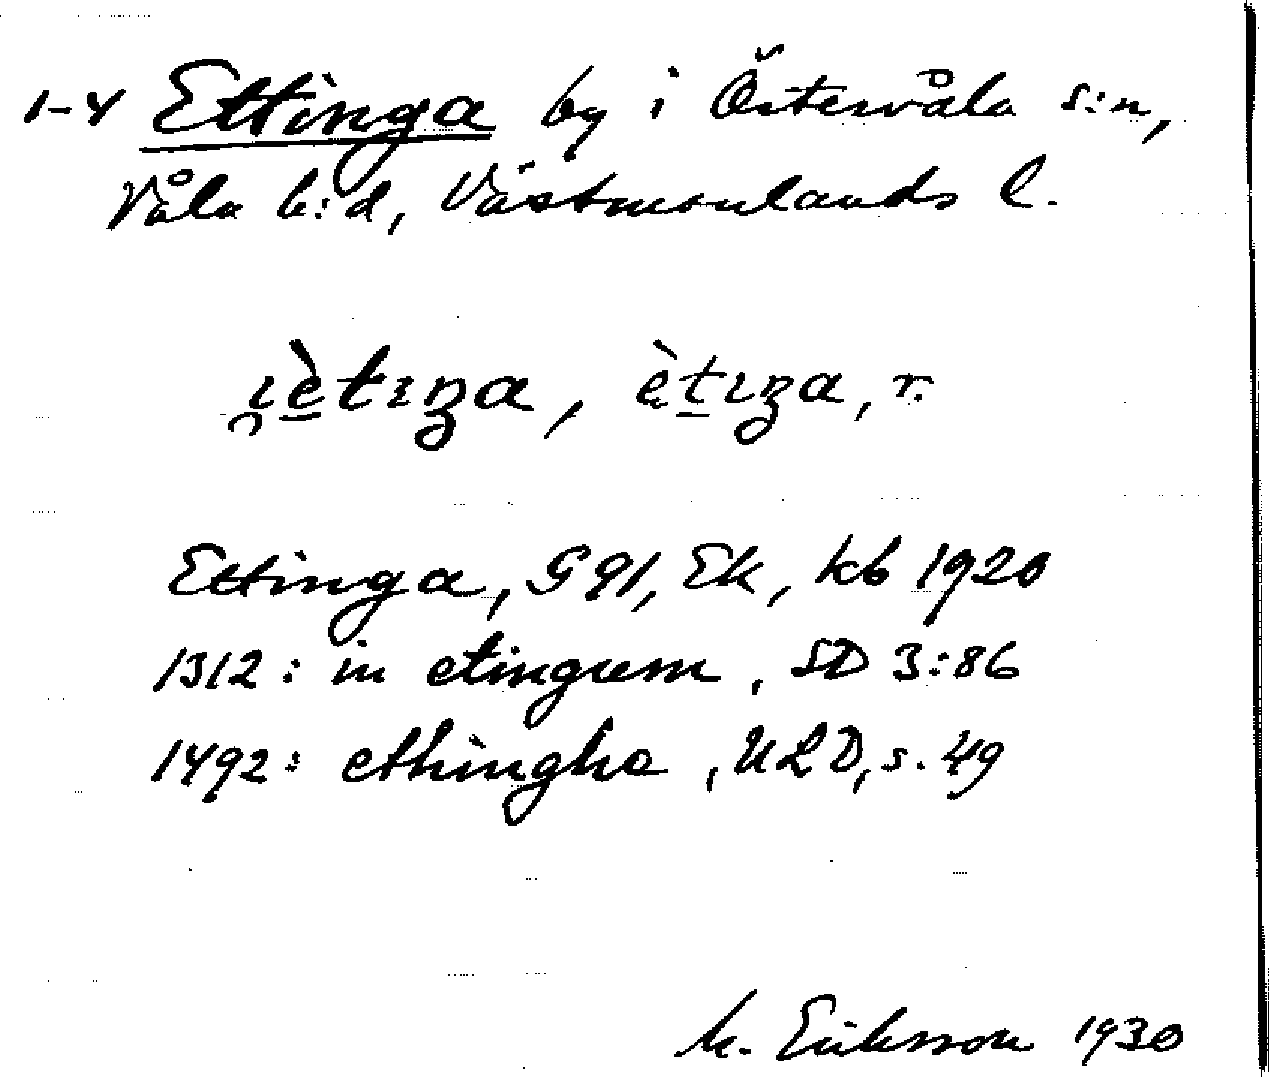 1-4 Ettinga by i Östervåla s:n,
Våla h:d, Västmanlands l.
ètıŋa, r.
Ettinga, G 91, Ek, kb 1920
1312: in etingium, SD 3:86
1492: ethingha, ULD, s. 49
M. Eriksson 1930